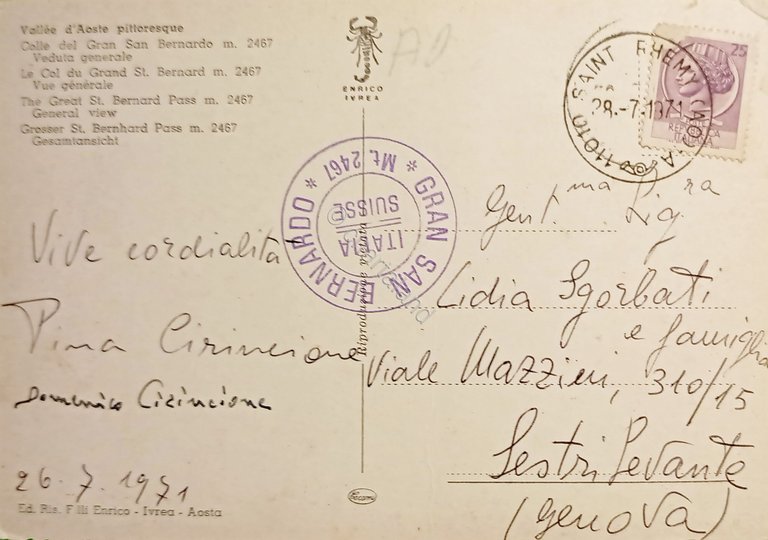 Vallée d'Aoste pittoresque
Colle del Gran San Bernardo m. 2467
Veduta generale
Le Col du Grand St. Bernard m. 2467
Vue générale
The Great St. Bernard Pass m. 2467
General view
Grosser St. Bernhard Pass m. 2467
Gesamtansicht
Vive cordialità
Pina Cirincione
Domenico Cirincione
26.7.1971
Ed. Ris. F.lli Enrico - Ivrea - Aosta
ENRICO
IVREA
AO
GRAN SAN BERNARDO * Mt. 2467 *
ITALIA
SUISSE
Riproduzione vietata
11010 SAINT RHEMY (AO)
28.-7.1971
25
REPUBBLICA
ITALIANA
Gent.ma Sig.ra
Lidia Sgorbati
e famiglia
Viale Mazzini, 310/15
Sestri Levante
(Genova)